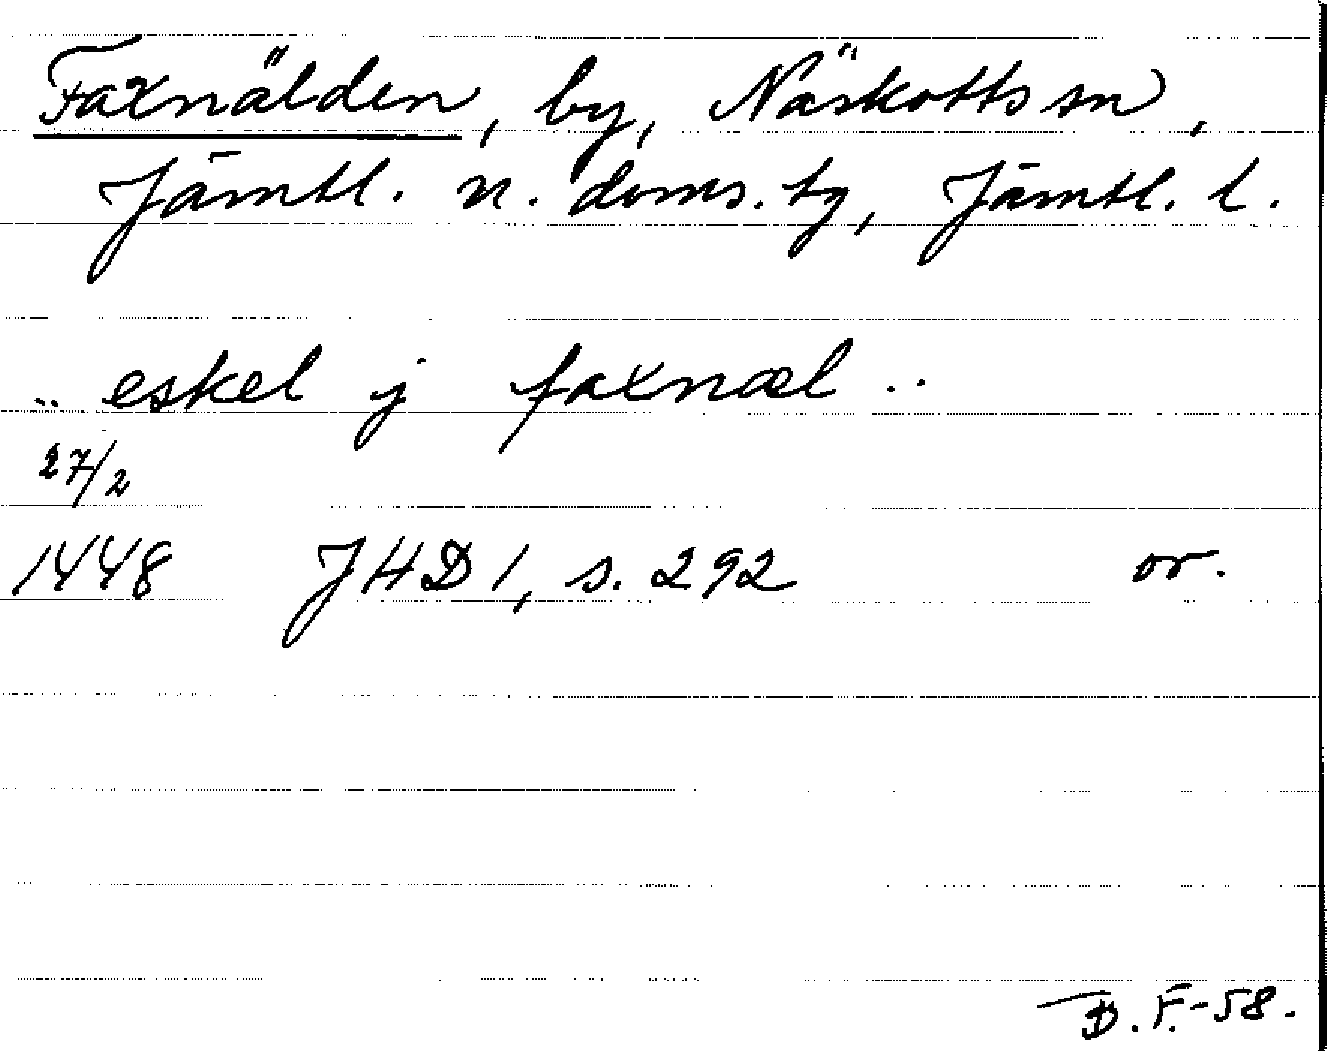 Faxnälden, by, Näskotts sn,
Jämtl. n. doms. tg, Jämtl. l.
.. eskel j faxnæl ..
27/2
1448 JHD 1, s. 292 or.
B. F. -58.